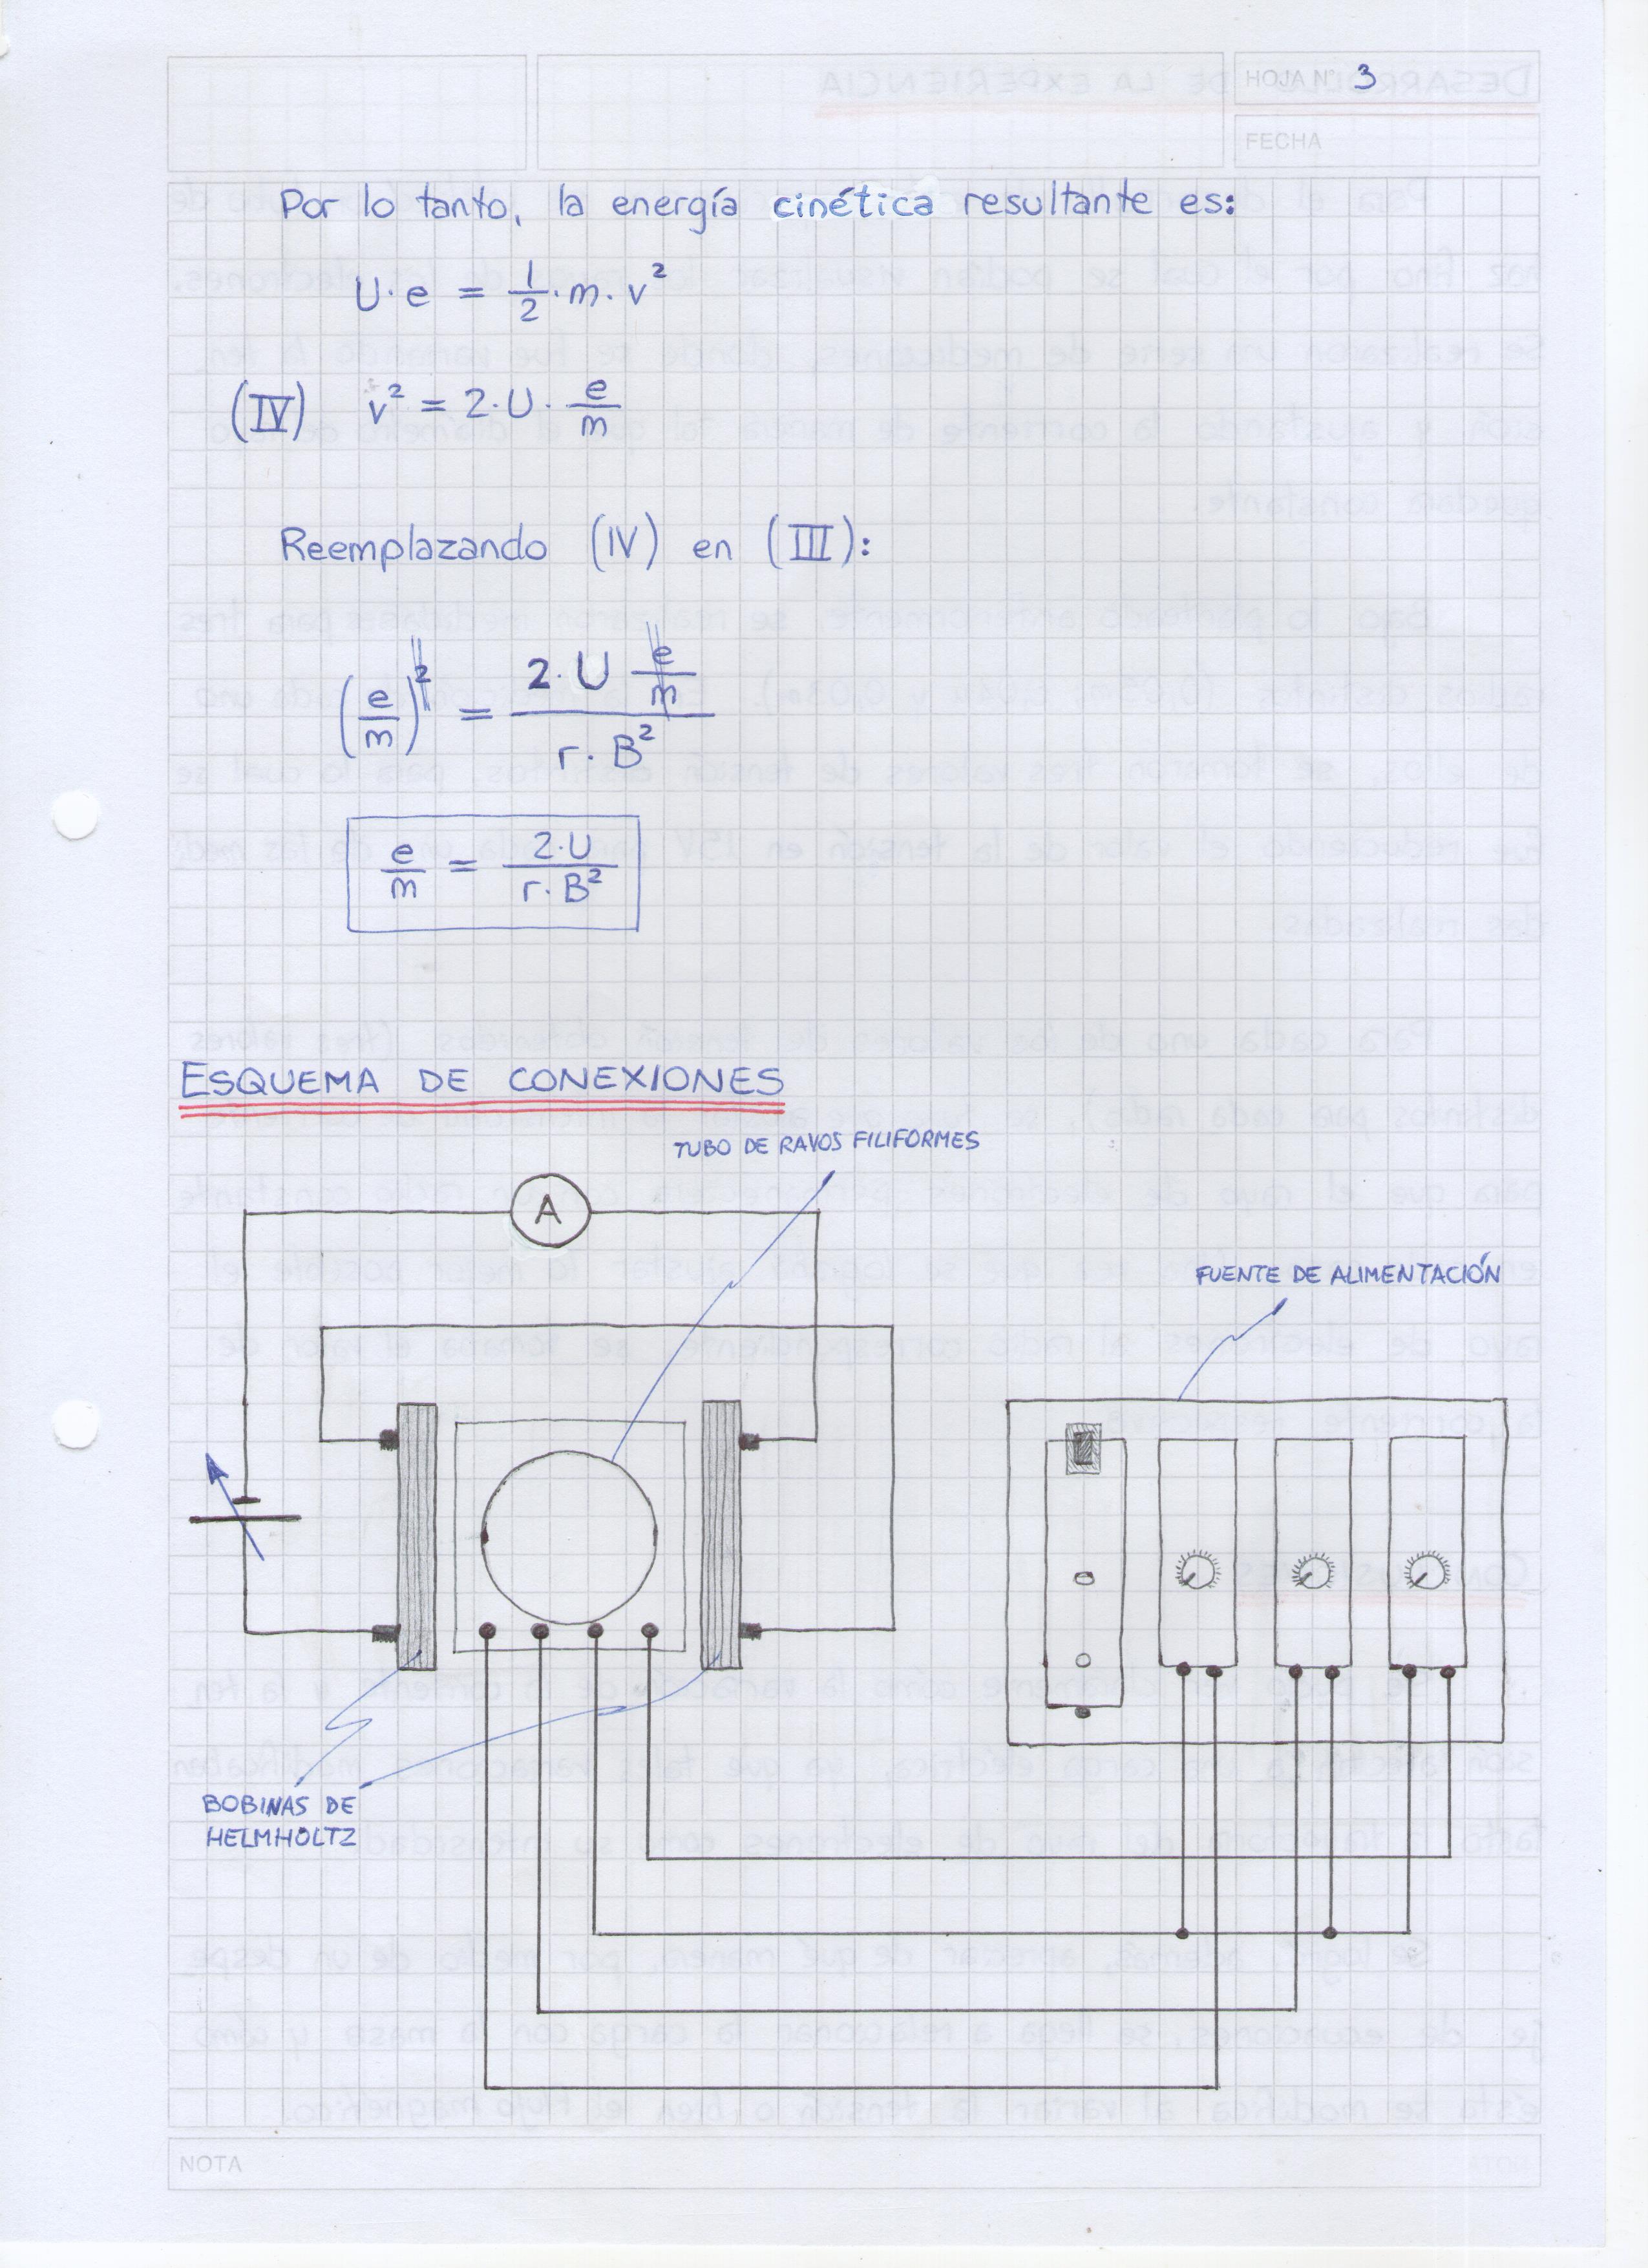 HOJA N° 3
FECHA
Por lo tanto, la energía cinética resultante es:
U·e = 1/2 · m · v²
(IV) v² = 2·U· e/m
Reemplazando (IV) en (III):
(e/m)² = 2·U e/m / r·B²
e/m = 2·U / r·B²
ESQUEMA DE CONEXIONES
TUBO DE RAYOS FILIFORMES
A
FUENTE DE ALIMENTACIÓN
BOBINAS DE
HELMHOLTZ
NOTA